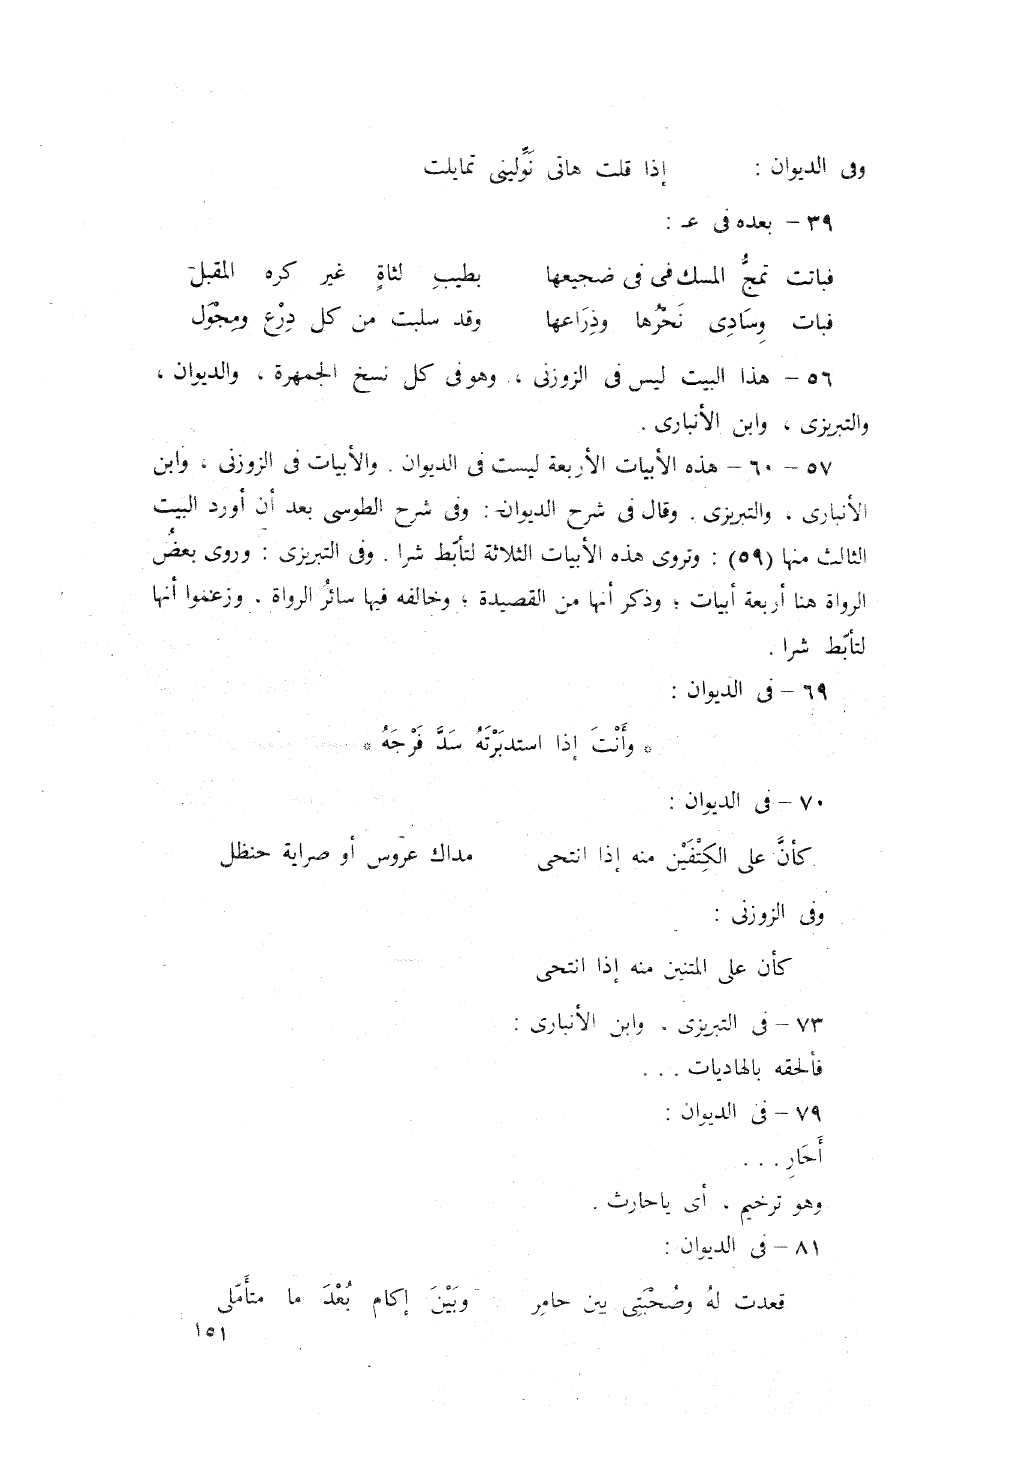 وفى الديوان :       إذا قلت هاتى نَوِّلينى تمايلت
٣٩ – بعده فى عـ :
فباتت تمجُّ المسك فى فى ضجيعها       بطيبِ لثاةٍ غير كره المقبل
فبات وِسَادِى نَحْرُها وذِرَاعها       وقد سلبت من كل دِرْع ومِجْوَل
٥٦ – هذا البيت ليس فى الزوزنى ، وهو فى كل نسخ الجمهرة ، والديوان ،
والتبريزى ، وابن الأنبارى .
٥٧ – ٦٠ – هذه الأبيات الأربعة ليست فى الديوان . والأبيات فى الزوزنى ، وابن
الأنبارى ، والتبريزى . وقال فى شرح الديوان : وفى شرح الطوسى بعد أن أورد البيت
الثالث منها (٥٩) : وتروى هذه الأبيات الثلاثة لتأبّط شرا . وفى التبريزى : وروى بعضُ
الرواة هنا أربعة أبيات ؛ وذكر أنها من القصيدة ؛ وخالفه فيها سائرُ الرواة . وزعموا أنها
لتأبّط شرا .
٦٩ – فى الديوان :
* وأَنْتَ إذا استدبَرْتَهُ سَدَّ فَرْجَهُ *
٧٠ – فى الديوان :
كأنَّ على الكِتْفَيْن منه إذا انتحى       مداك عروس أو صراية حنظل
وفى الزوزنى :
كأن على المتنين منه إذا انتحى
٧٣ – فى التبريزى ، وابن الأنبارى :
فألحقه بالهاديات . . .
٧٩ – فى الديوان :
أَحَارِ . . .
وهو ترخيم ، أى ياحارث .
٨١ – فى الديوان :
قعدت لهُ وصُحْبَتِى بين حامِر       وبَيْنَ إكام بُعْدَ ما متأَمّلى
١٥١